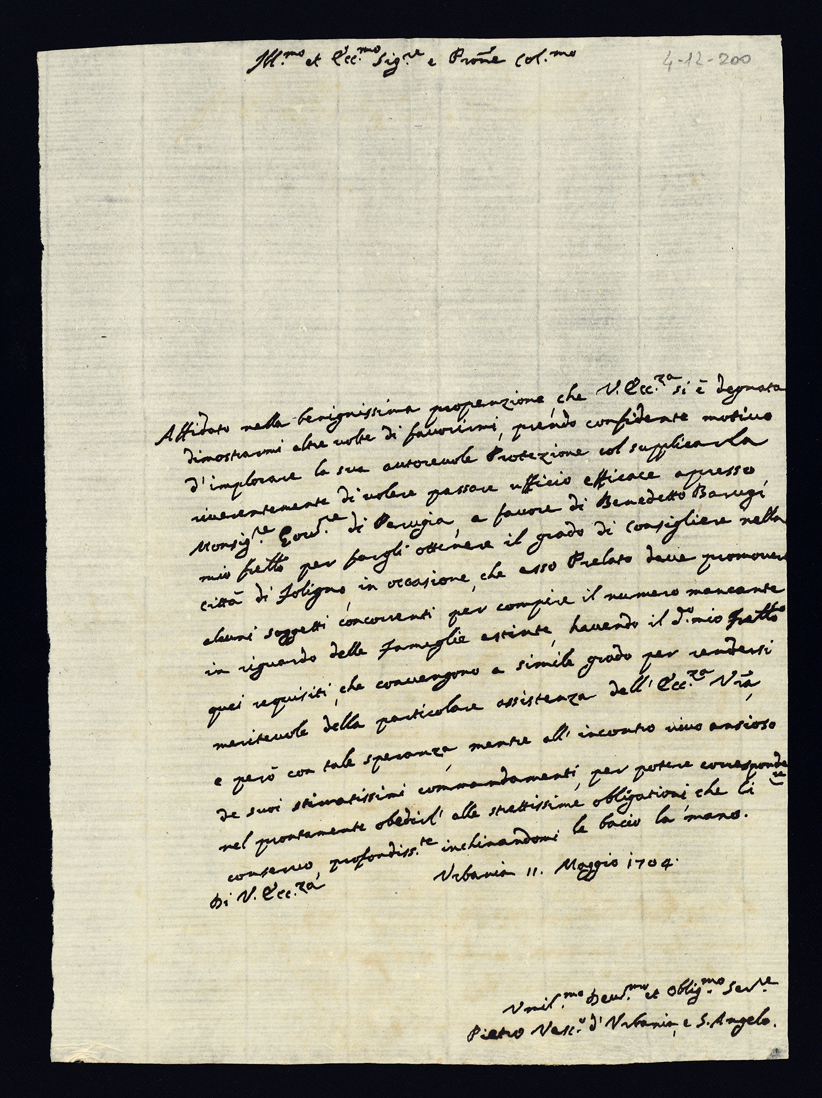 Ill.mo et Ecc.mo Sig.re e Prone Col.mo
4-12-200
Affidato nella benignissima propenzione, che V. Ecc.za si è degnata
dimostrarmi altre volte di favorirmi, prendo confidente motivo
d'implorare la sua autorevole Protezione col supplicarla
riverentemente di volere passare ufficio efficace apresso
Monsig.re Gov.re di Perugia, a favore di Benedetto Barugi,
mio frello per fargli ottenere il grado di Consigliere nella
città di Foligno in occasione, che esso Prelato deve promovere
alcuni soggetti concorrenti per compire il numero mancante
in riguardo delle fameglie estinte, havendo il d.o mio frello
quei requisiti, che convengono a simile grado per rendersi
meritevole della particolare assistenza dell'Ecc.za Vra
e però con tale speranza, mentre all'incontro vivo ansioso
de suoi stimatissimi commandamenti, per potere corrispondere
nel prontamente obedirl' alle strettissime obligationi che li
conservo, profondiss.te inchinandomi le bacio la mano.
Di V. Ecc.za
Urbania 11. Maggio 1704.
Umil.mo Devt.mo et Oblig.mo Ser.re
Pietro Vesc.o d'Urbania, e S. Angelo.